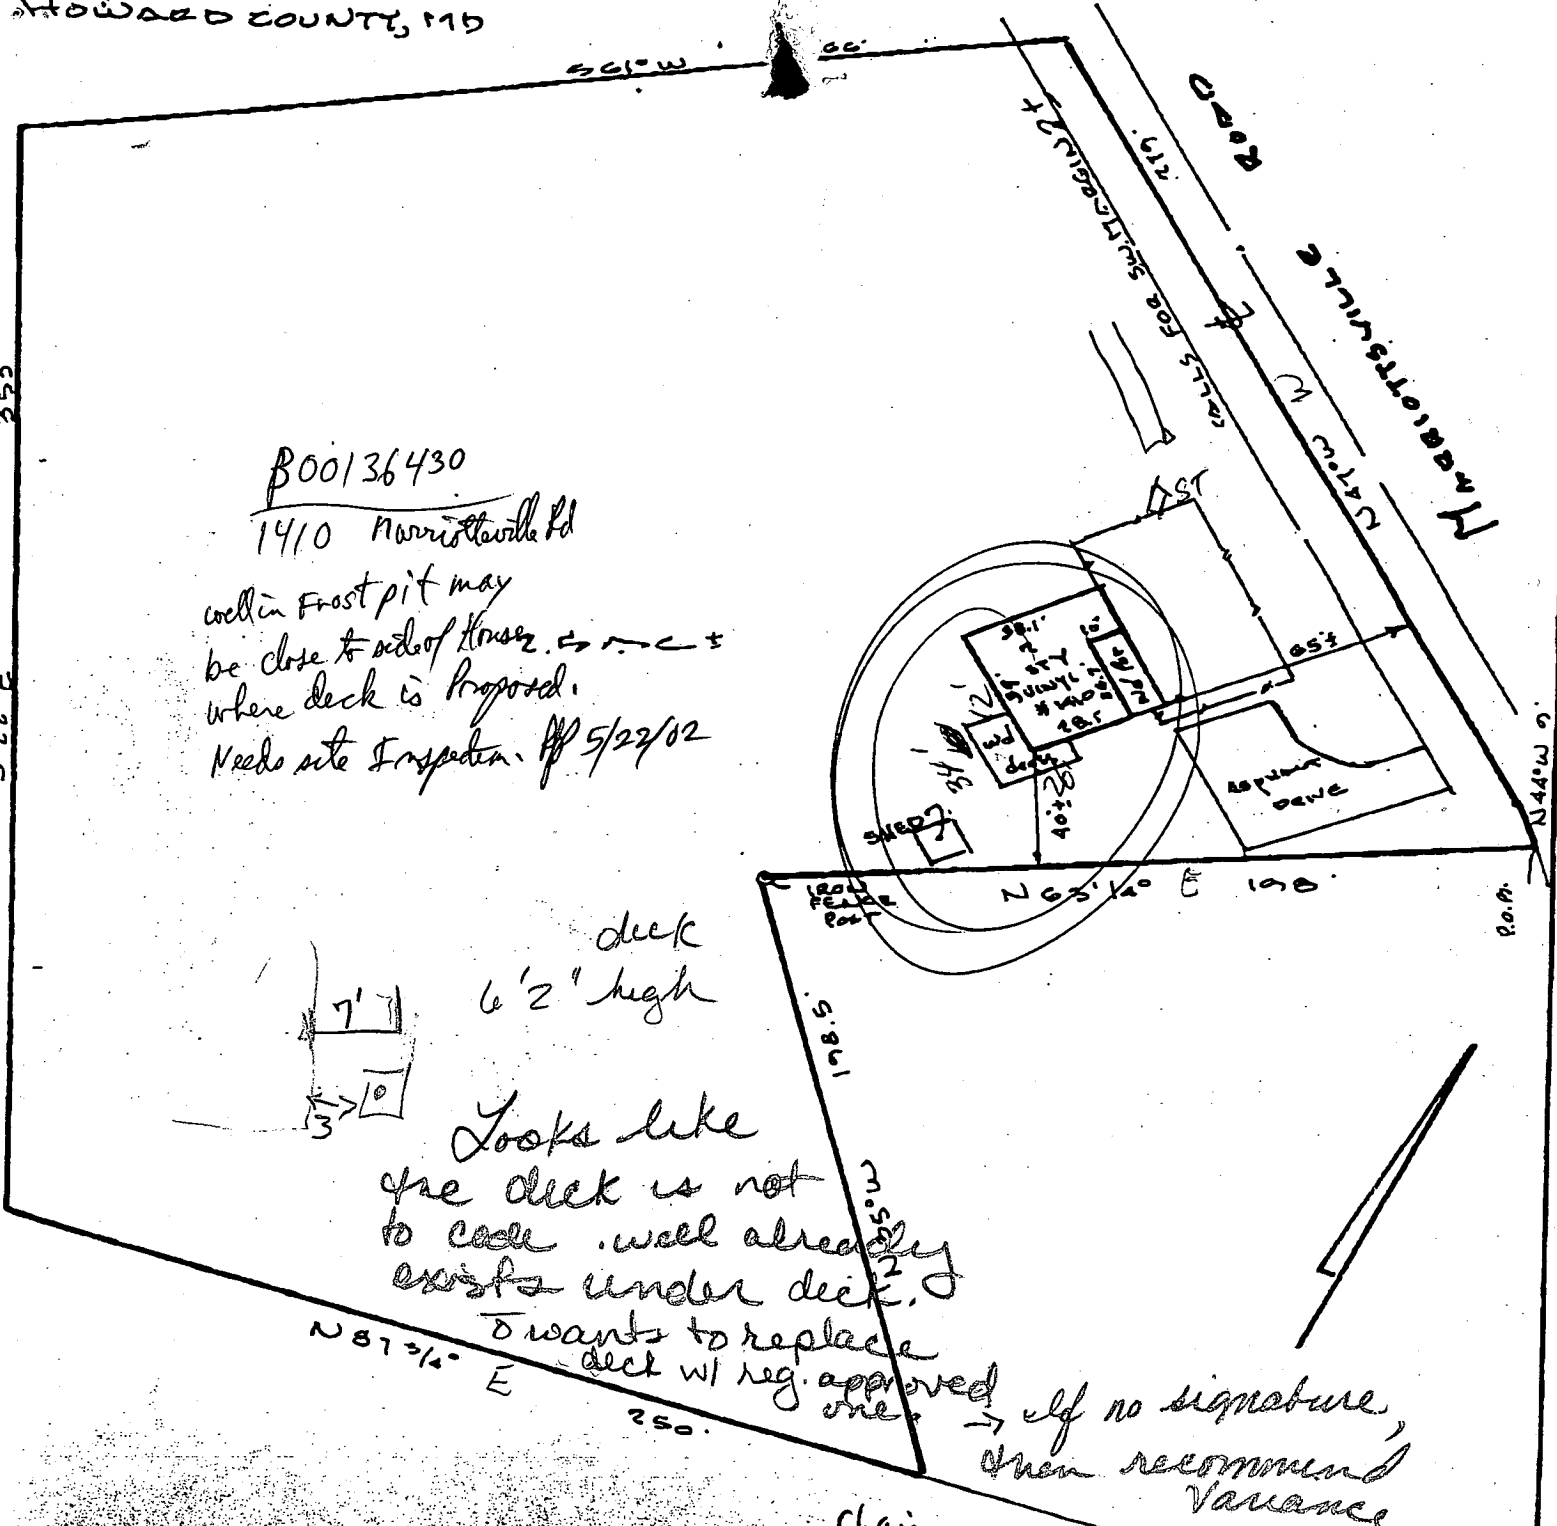 HOWARD COUNTY, MD
S61°W
66.
279.
ROAD
MARRIOTTSVILLE
N47°W
N44°W 9.
P.O.B.
B00136430
1410 Marriottsville Rd
well in Frost pit may
be close to side of House
where deck is Proposed.
Needs site Inspection. 5/22/02
ST
38.1'
2
STY
VINYL
# 1410
28.5
10'
65'±
12'
34'
wd
deck
40'±
SHED
ASPHALT
DRIVE
IRON
FENCE
POST
N 63 1/4° E 198.
198.5.
deck
6'2" high
7'
3
Looks like
the deck is not
to code. well already
exists under deck.
wants to replace
deck w/ reg. approved
one. → If no signature,
then recommend
Variance
N 87 3/4°
E
250.